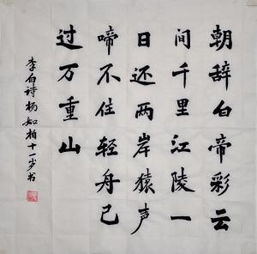 朝辞白帝彩云
间千里江陵一
日还两岸猿声
啼不住轻舟已
过万重山
李白诗杨如柏十一岁书